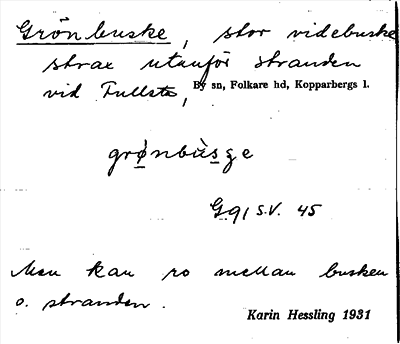 Grönbuske, stor videbuske
strax utanför stranden
vid Fullsta, By sn, Folkare hd, Kopparbergs l.
grø̱nbùs̱ge
G 91 S.V. 45
Man kan ro mellan busken
o. stranden.
Karin Hessling 1931